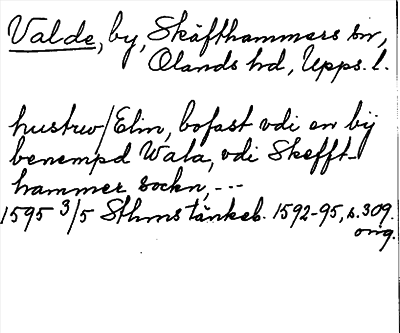 Valde, by, Skäfthammars sn,
Olands hd, Upps. l.
hustrw/Elin, bofast vdi en bij
benempd Wala, vdi Skefft-
hammer sockn, ---
1595 3/5 Sthms tänkeb. 1592-95, s. 309.
orig.